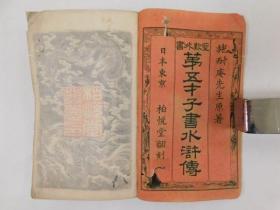 聖歎外書
施耐庵先生原著
第五才子書水滸傳
日本東京 柏悅堂翻刻